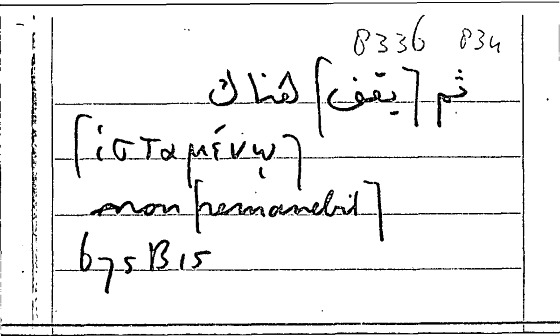 8336 834
ثم [يقف] هناك
[ἱσταμένῳ]
non [remanebit]
675B15